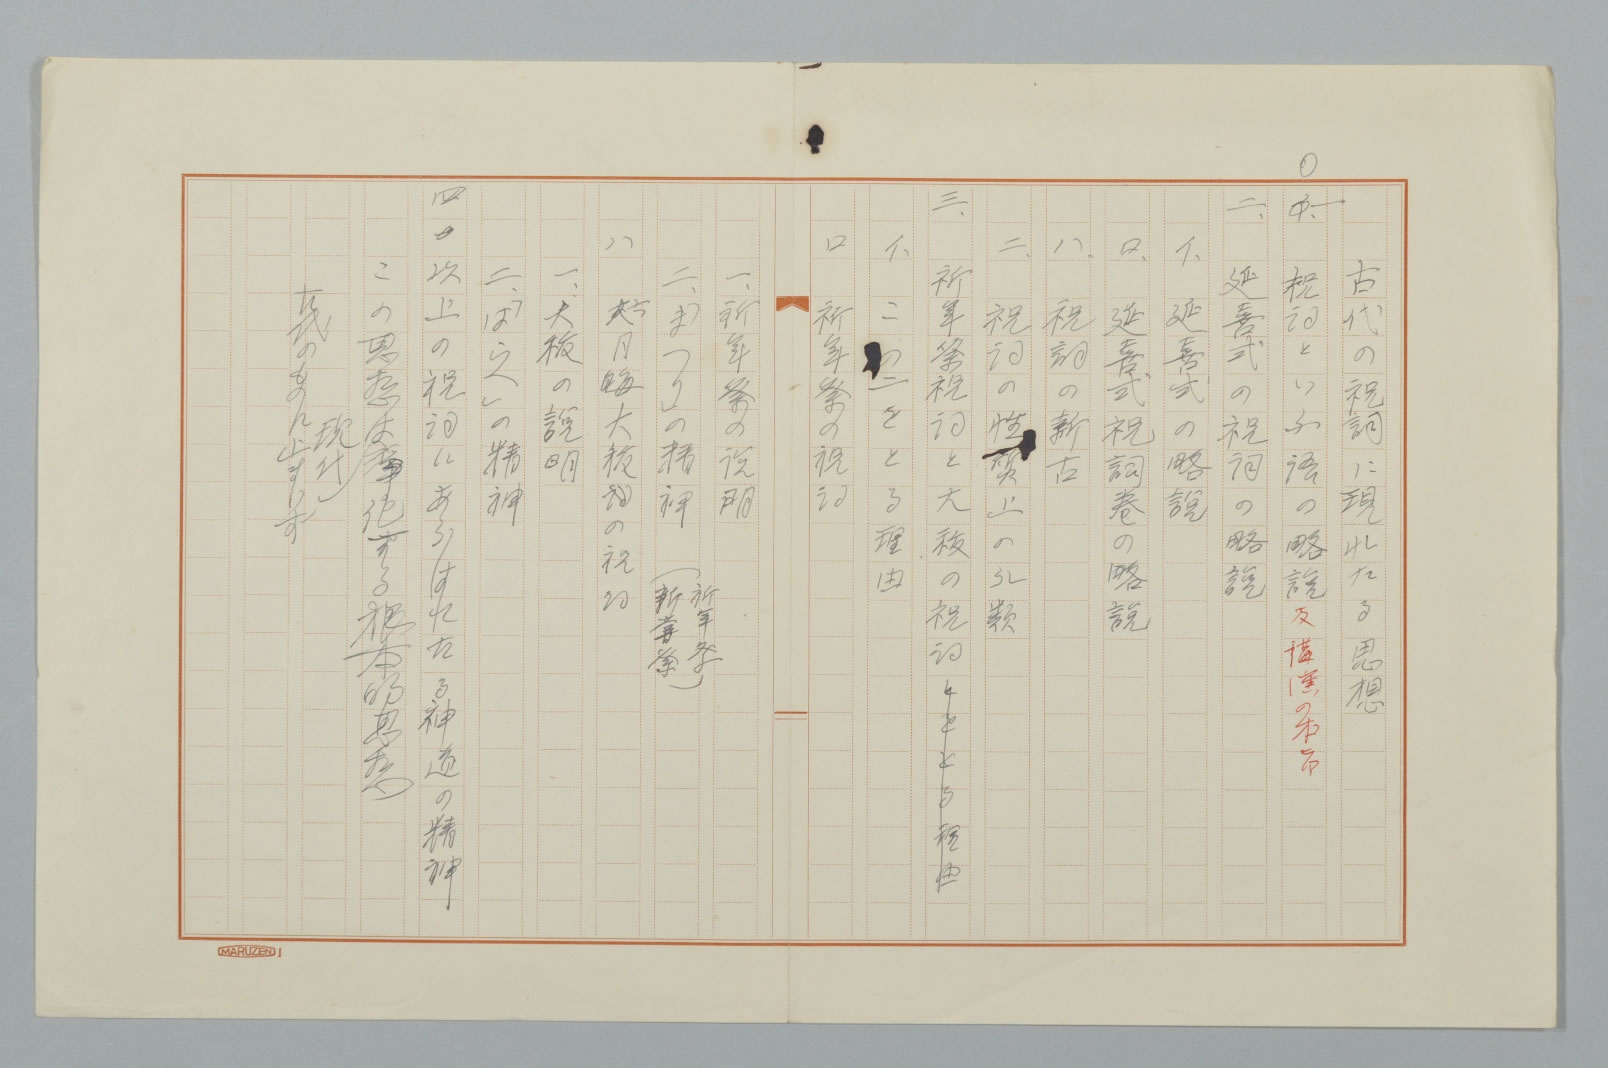 古代の祝詞に現れたる思想
一、祝詞といふ語の略説及講演の本旨
二、延喜式の祝詞の略説
イ、延喜式の略説
ロ、延喜式祝詞巻の略説
ハ、祝詞の新古
ニ、祝詞の性質上の分類
三、祈年祭祝詞と大祓の祝詞とをとる理由
イ、この二をとる理由
ロ 祈年祭の祝詞
一、祈年祭の説明
二、「まつり」の精神
(祈年祭
新嘗祭)
ハ 六月晦大祓の祝詞
一、大祓の説明
二、「はらへ」の精神
四 以上の祝詞にあらはれたる神道の精神
この思想は現代
する根本的思想
古代のものに止まらず
MARUZEN